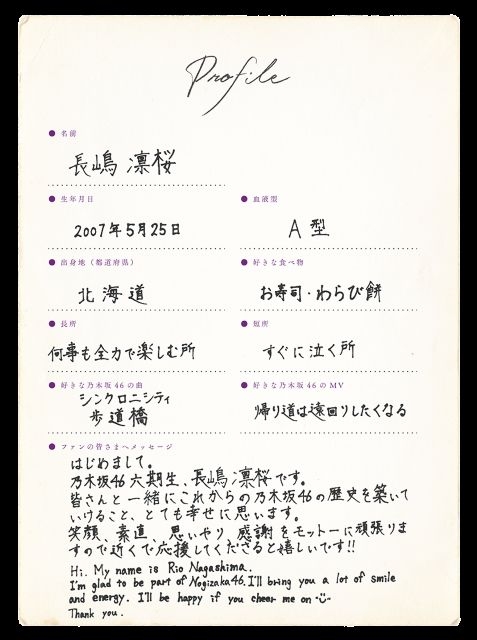 Profile
名前
長嶋 凛桜
生年月日
2007年5月25日
血液型
A型
出身地（都道府県）
北海道
好きな食べ物
お寿司・わらび餅
長所
何事も全力で楽しむ所
短所
すぐに泣く所
好きな乃木坂46の曲
シンクロニシティ
歩道橋
好きな乃木坂46のMV
帰り道は遠回りしたくなる
ファンの皆さまへメッセージ
はじめまして。
乃木坂46 六期生、長嶋凛桜です。
皆さんと一緒にこれからの乃木坂46の歴史を築いて
いけること、とても幸せに思います。
笑顔、素直、思いやり 感謝をモットーに頑張りま
すので近くで応援してくださると嬉しいです!!
Hi. My name is Rio Nagashima.
I'm glad to be part of Nogizaka46. I'll bring you a lot of smile
and energy. I'll be happy if you cheer me on
Thank you.